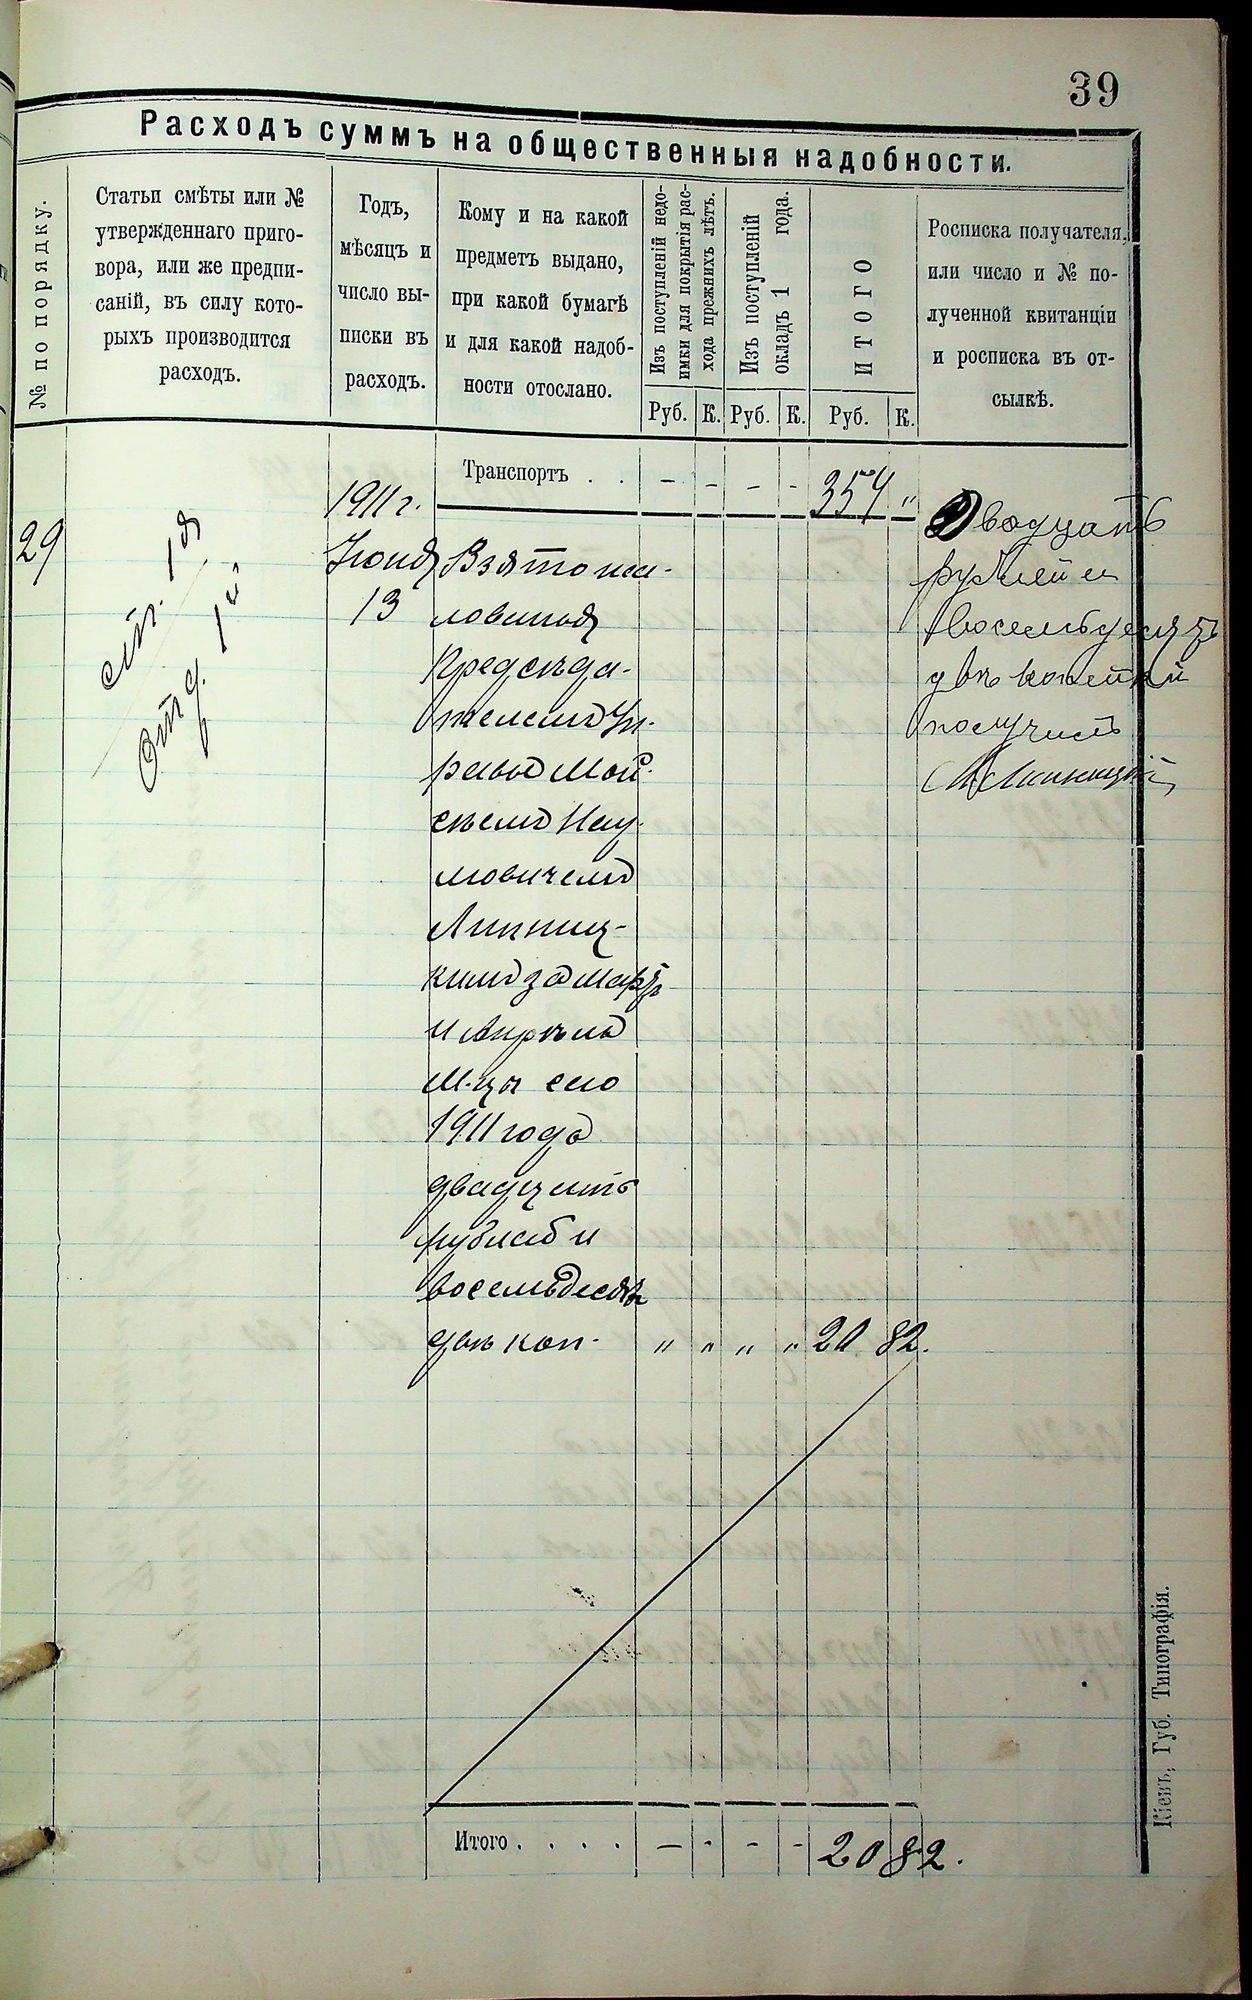 39
Расходъ суммъ на общественныя надобности.
№ по порядку.
Статьи смѣты или №
утвержденнаго приго-
вора, или же предпи-
саній, въ силу кото-
рыхъ производится
расходъ.
Годъ,
мѣсяцъ и
число вы-
писки въ
расходъ.
Кому и на какой
предметъ выдано,
при какой бумагѣ
и для какой надоб-
ности отослано.
Изъ поступленій недо-
имки для покрытія рас-
хода прежнихъ лѣтъ.
Изъ поступленій
окладъ 1 года.
ИТОГО
Росписка получателя,
или число и № по-
лученной квитанціи
и росписка въ от-
сылкѣ.
Руб. К. Руб. К. Руб. К.
Транспортъ . . - - - - 354 "
29
ст. 1я
Отд. 1й
1911 г.
Іюня
13
Взято жа-
лованья
Предсѣда-
телемъ Уп-
равы Мой-
сѣемъ Нау-
мовичемъ
Липниц-
кимъ за Мартъ
и Апрѣль
М-цы сего
1911 года
двадцать
рублей и
восемьдесятъ
двѣ коп. " " " " 20 82.
Двадцать
рублей и
восемьдесятъ
двѣ копейки
получилъ
М Липницкій
Итого . . . . - - - - 20 82.
Кіевъ, Губ. Типографія.